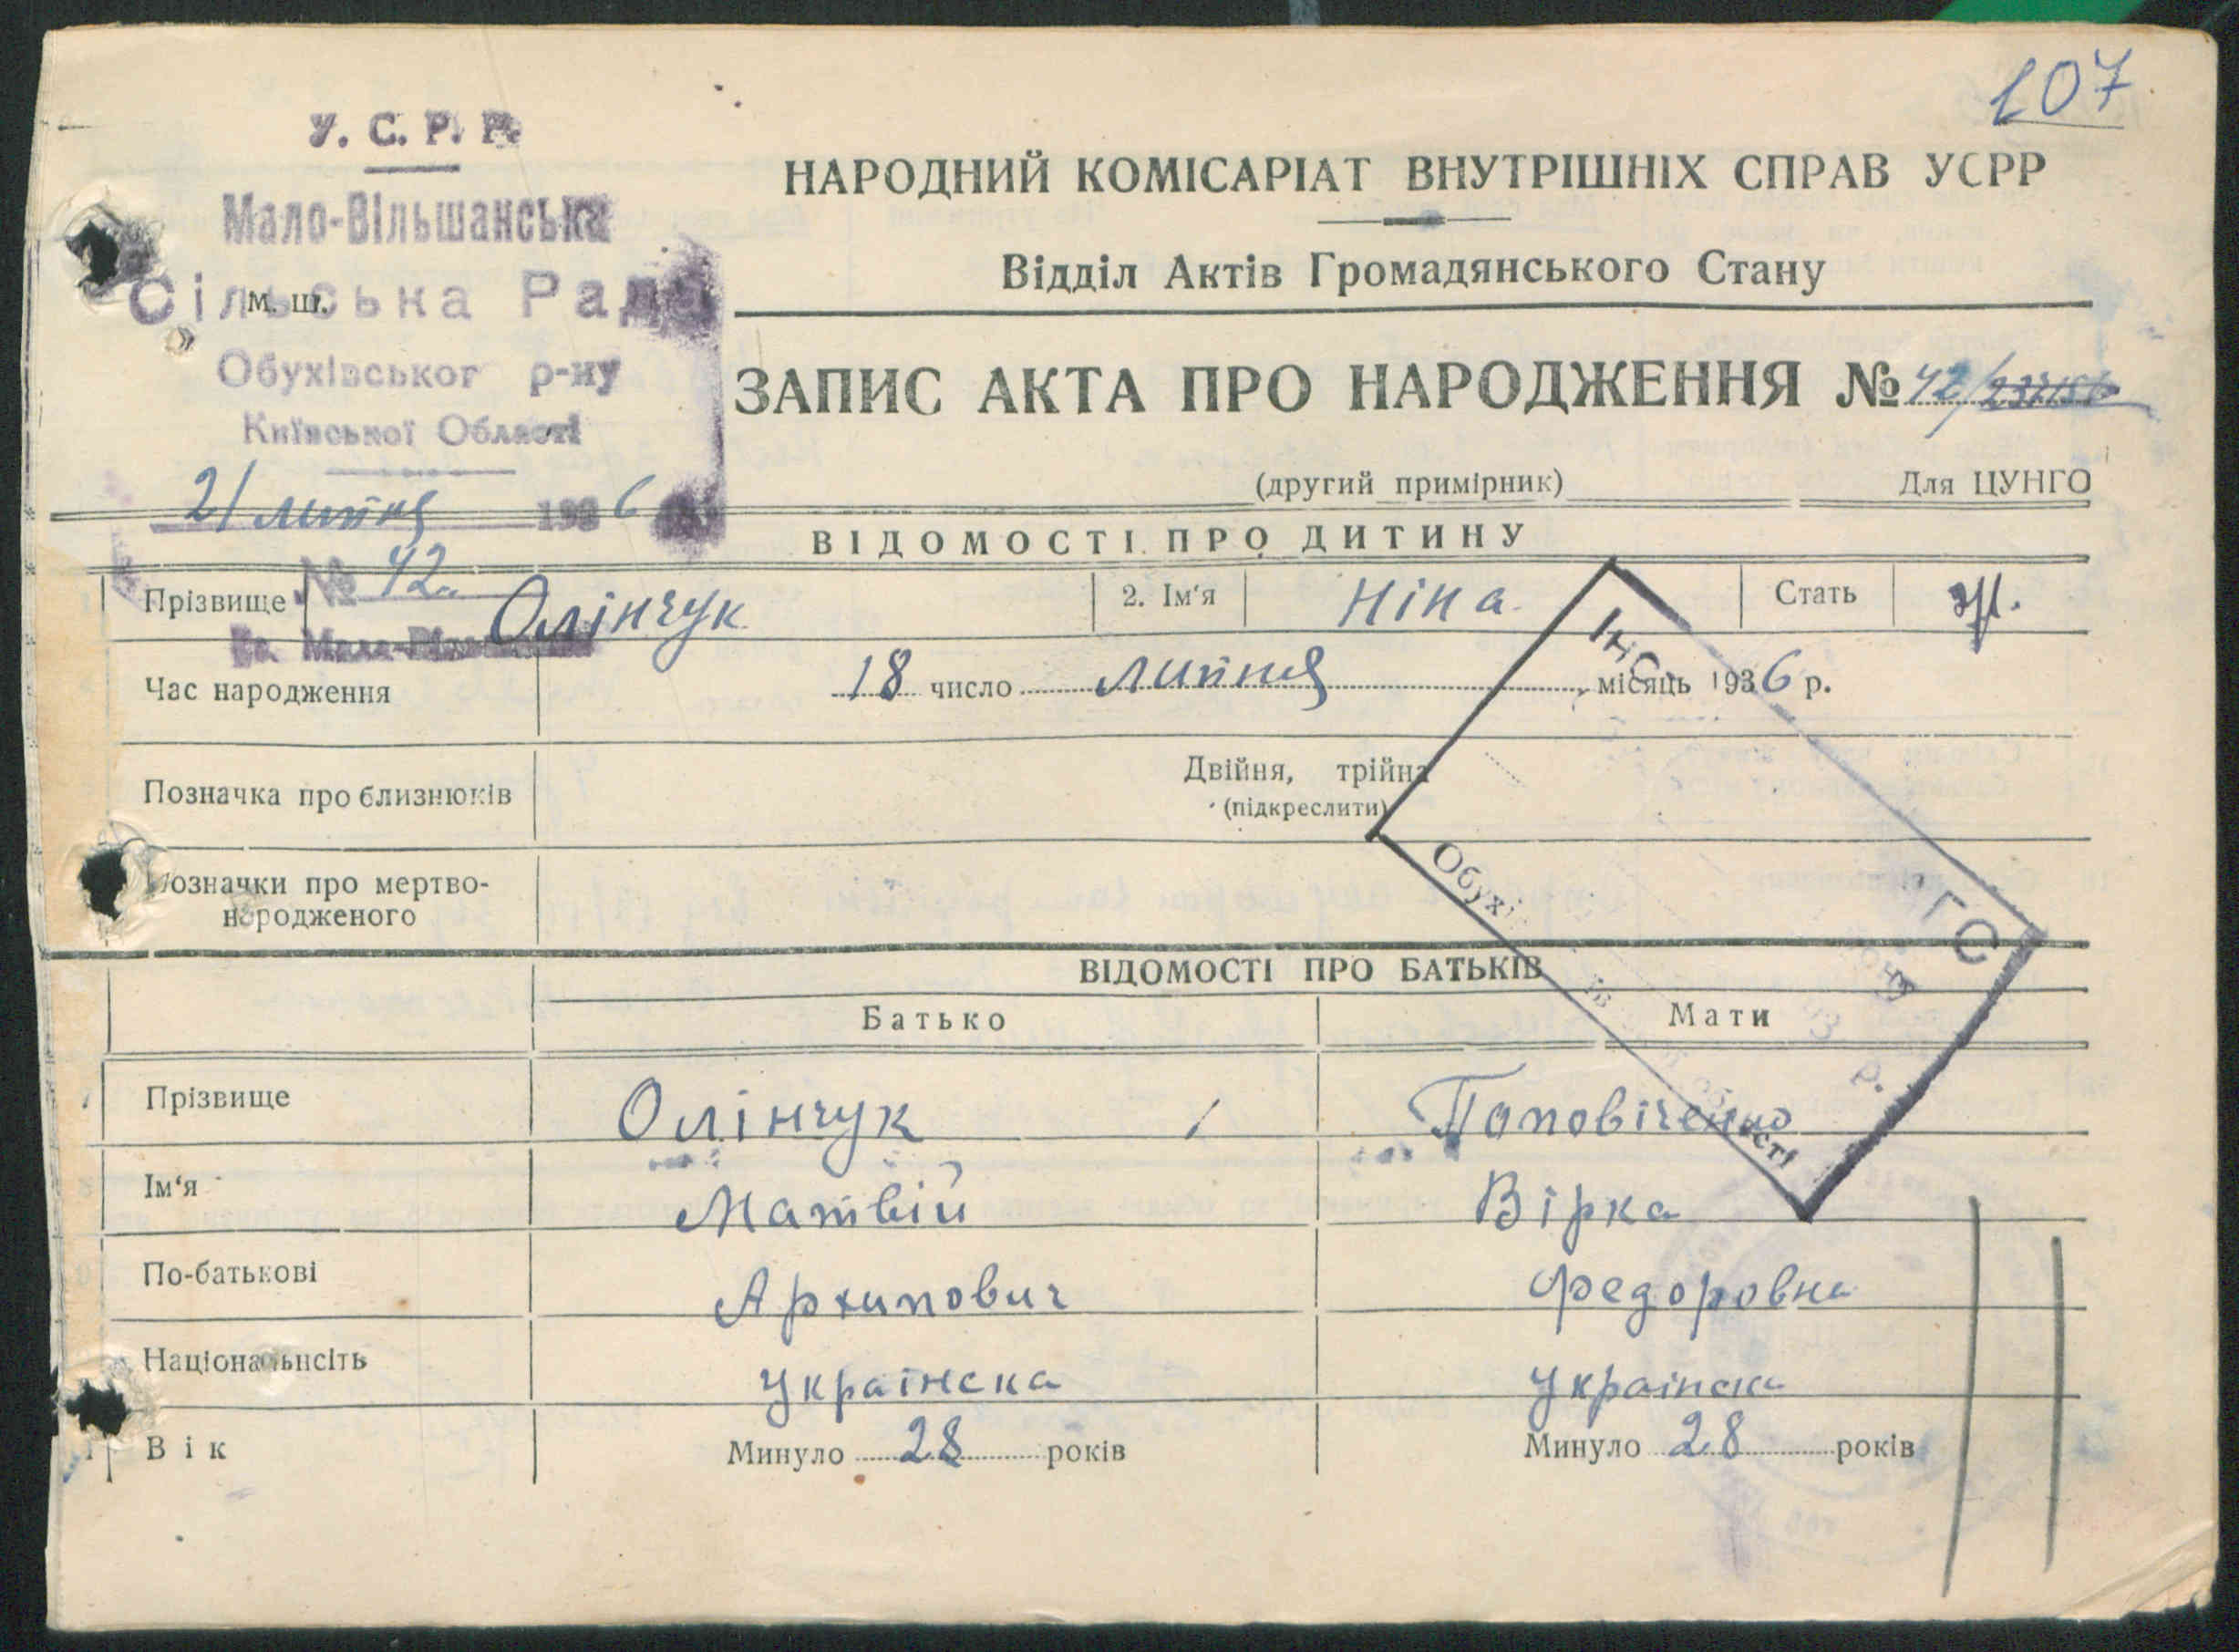 107
У. С. Р. Р.
Мало-Вільшанська
Сільська Рада
м. ш.
Обухівськог р-ну
Київської Області
21 липня 1936
№ 42
НАРОДНИЙ КОМІСАРІАТ ВНУТРІШНІХ СПРАВ УСРР
Відділ Актів Громадянського Стану
ЗАПИС АКТА ПРО НАРОДЖЕННЯ № 42/
(другий примірник) Для ЦУНГО
ВІДОМОСТІ ПРО ДИТИНУ
Прізвище Олінчук 2. Ім'я Ніна Стать ж.
Час народження 18 число липня місяць 1936 р.
Позначка про близнюків Двійня, трійна
(підкреслити)
Позначки про мертво-
народженого
ВІДОМОСТІ ПРО БАТЬКІВ
Батько Мати
Прізвище Олінчук Поповіченко
Ім'я Матвій Вірка
По-батькові Архипович Федоровна
Національнсіть Українска Українска
Вік Минуло 28 років Минуло 28 років